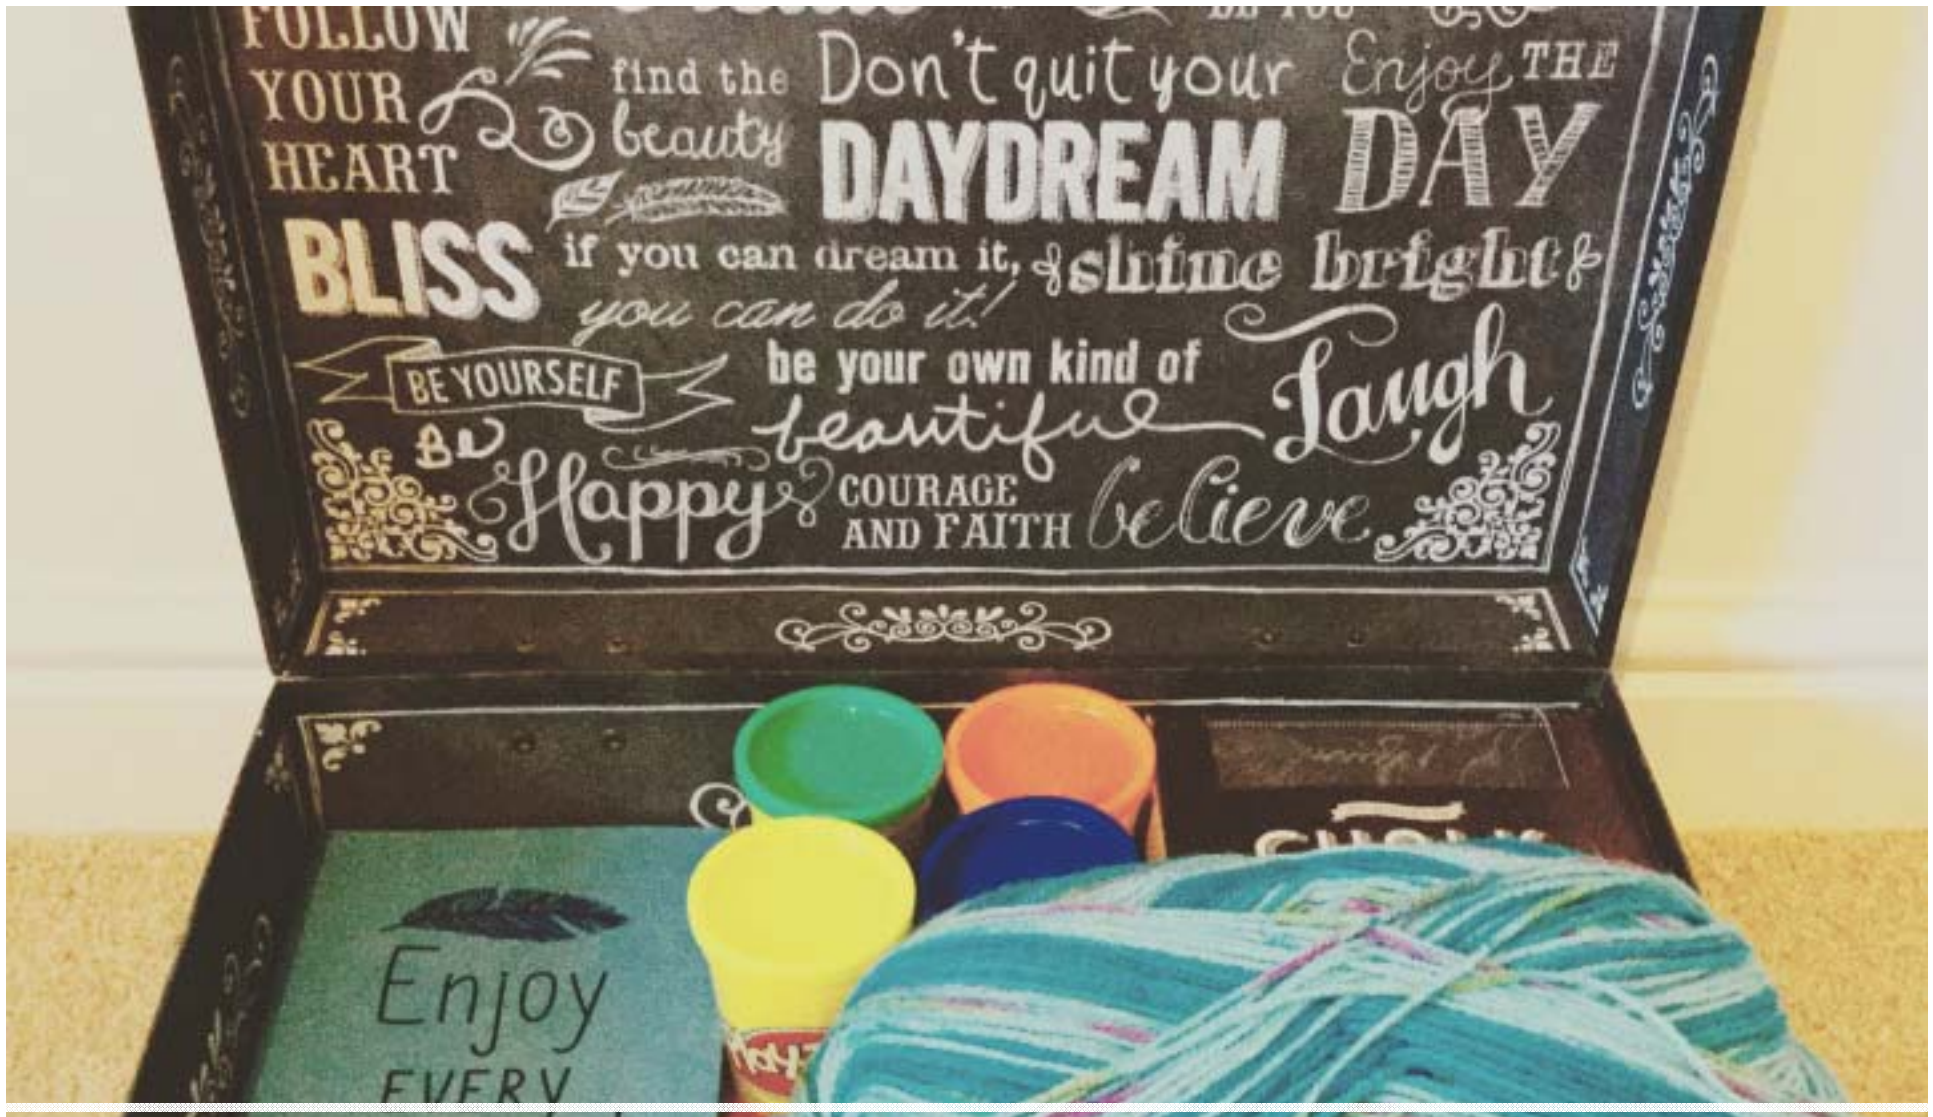 FOLLOW
YOUR
HEART
find the
beauty
Don't quit your
DAYDREAM
Enjoy THE
DAY
BLISS
if you can dream it,
you can do it!
shine bright
BE YOURSELF
be your own kind of
beautiful
Laugh
BE
Happy
COURAGE
AND FAITH
believe
Enjoy
EVERY